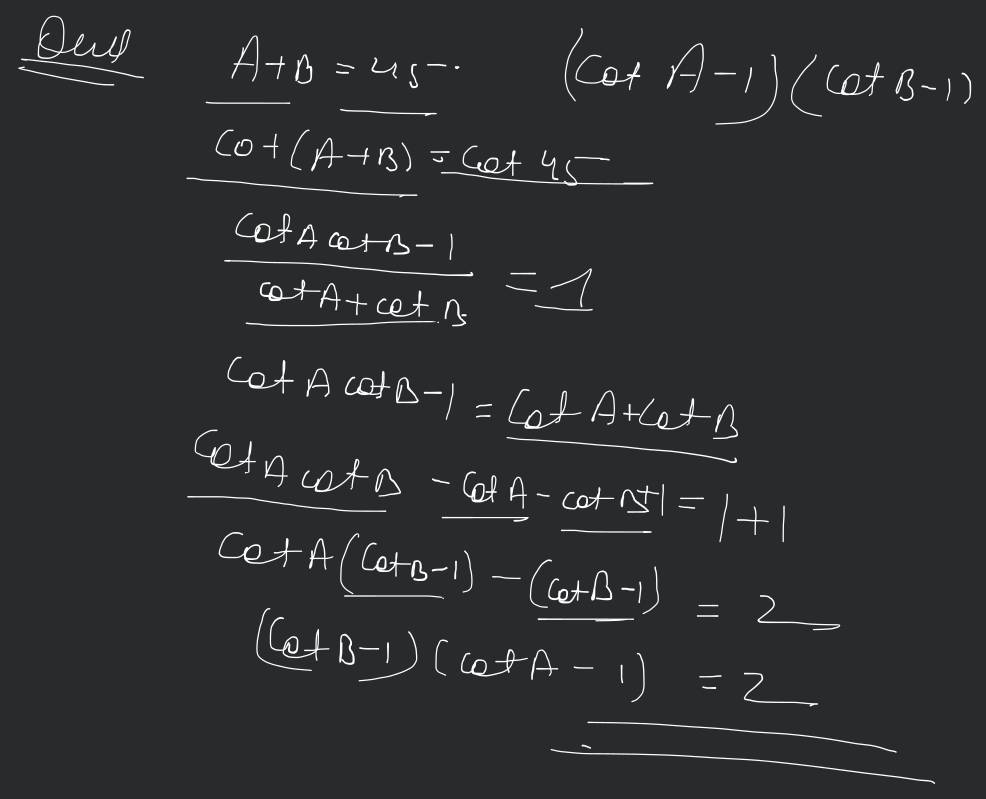 Ques A+B = 45° (Cot A-1)(Cot B-1)
Cot(A+B) = Cot 45
Cot A cot B - 1
cot A + cot B = 1
Cot A cot B - 1 = Cot A + Cot B
Cot A cot B - Cot A - cot B + 1 = 1+1
Cot A (Cot B-1) - (Cot B-1) = 2
(Cot B-1)(cot A - 1) = 2